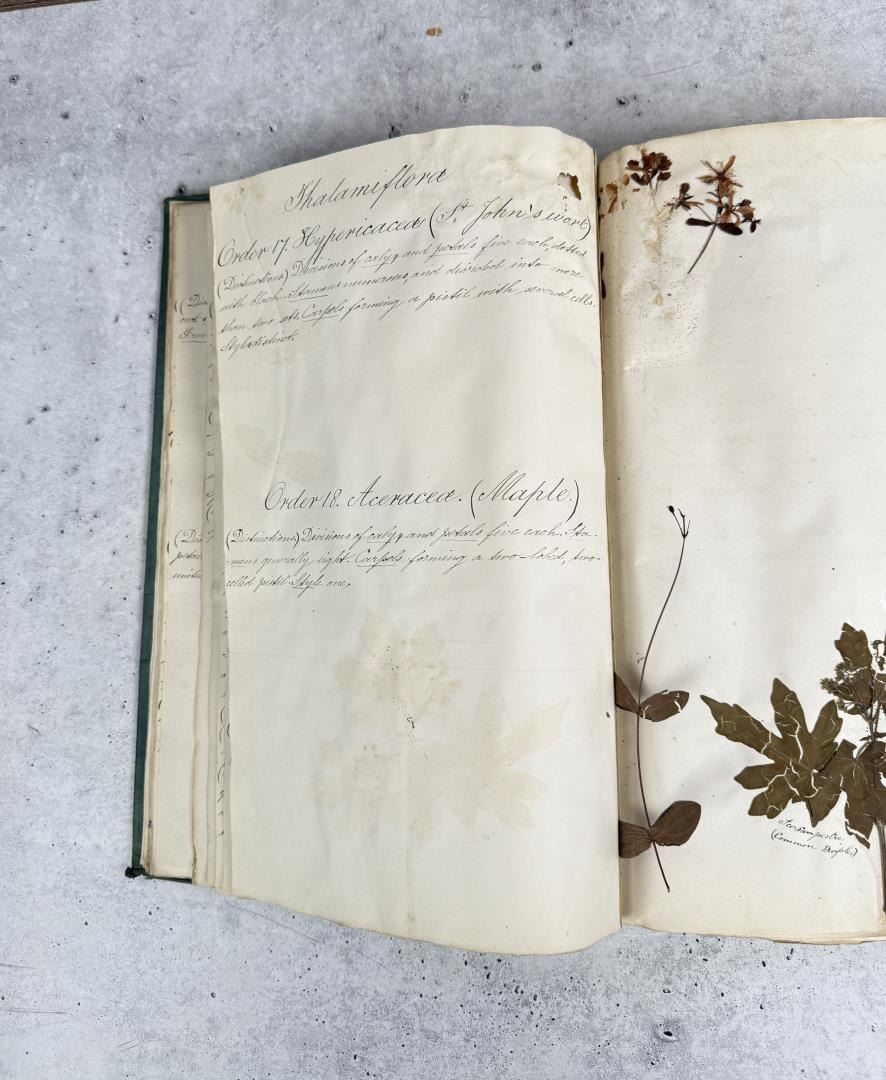 Thalamiflora
Order 17. Hypericaceæ (St. John's wort)
(Distinctions) Divisions of calyx and petals five each, dotted
with black. Stamens numerous, and divided into more
than two sets. Carpels forming a pistil with several cells.
Styles distinct.
Order 18. Aceraceæ. (Maple.)
(Distinctions) Divisions of calyx and petals five each. Sta-
-mens generally eight. Carpels forming a two-lobed, two-
celled pistil. Style one.
(Dis
(Dis
petals
united
Acer campestre
(Common Maple)